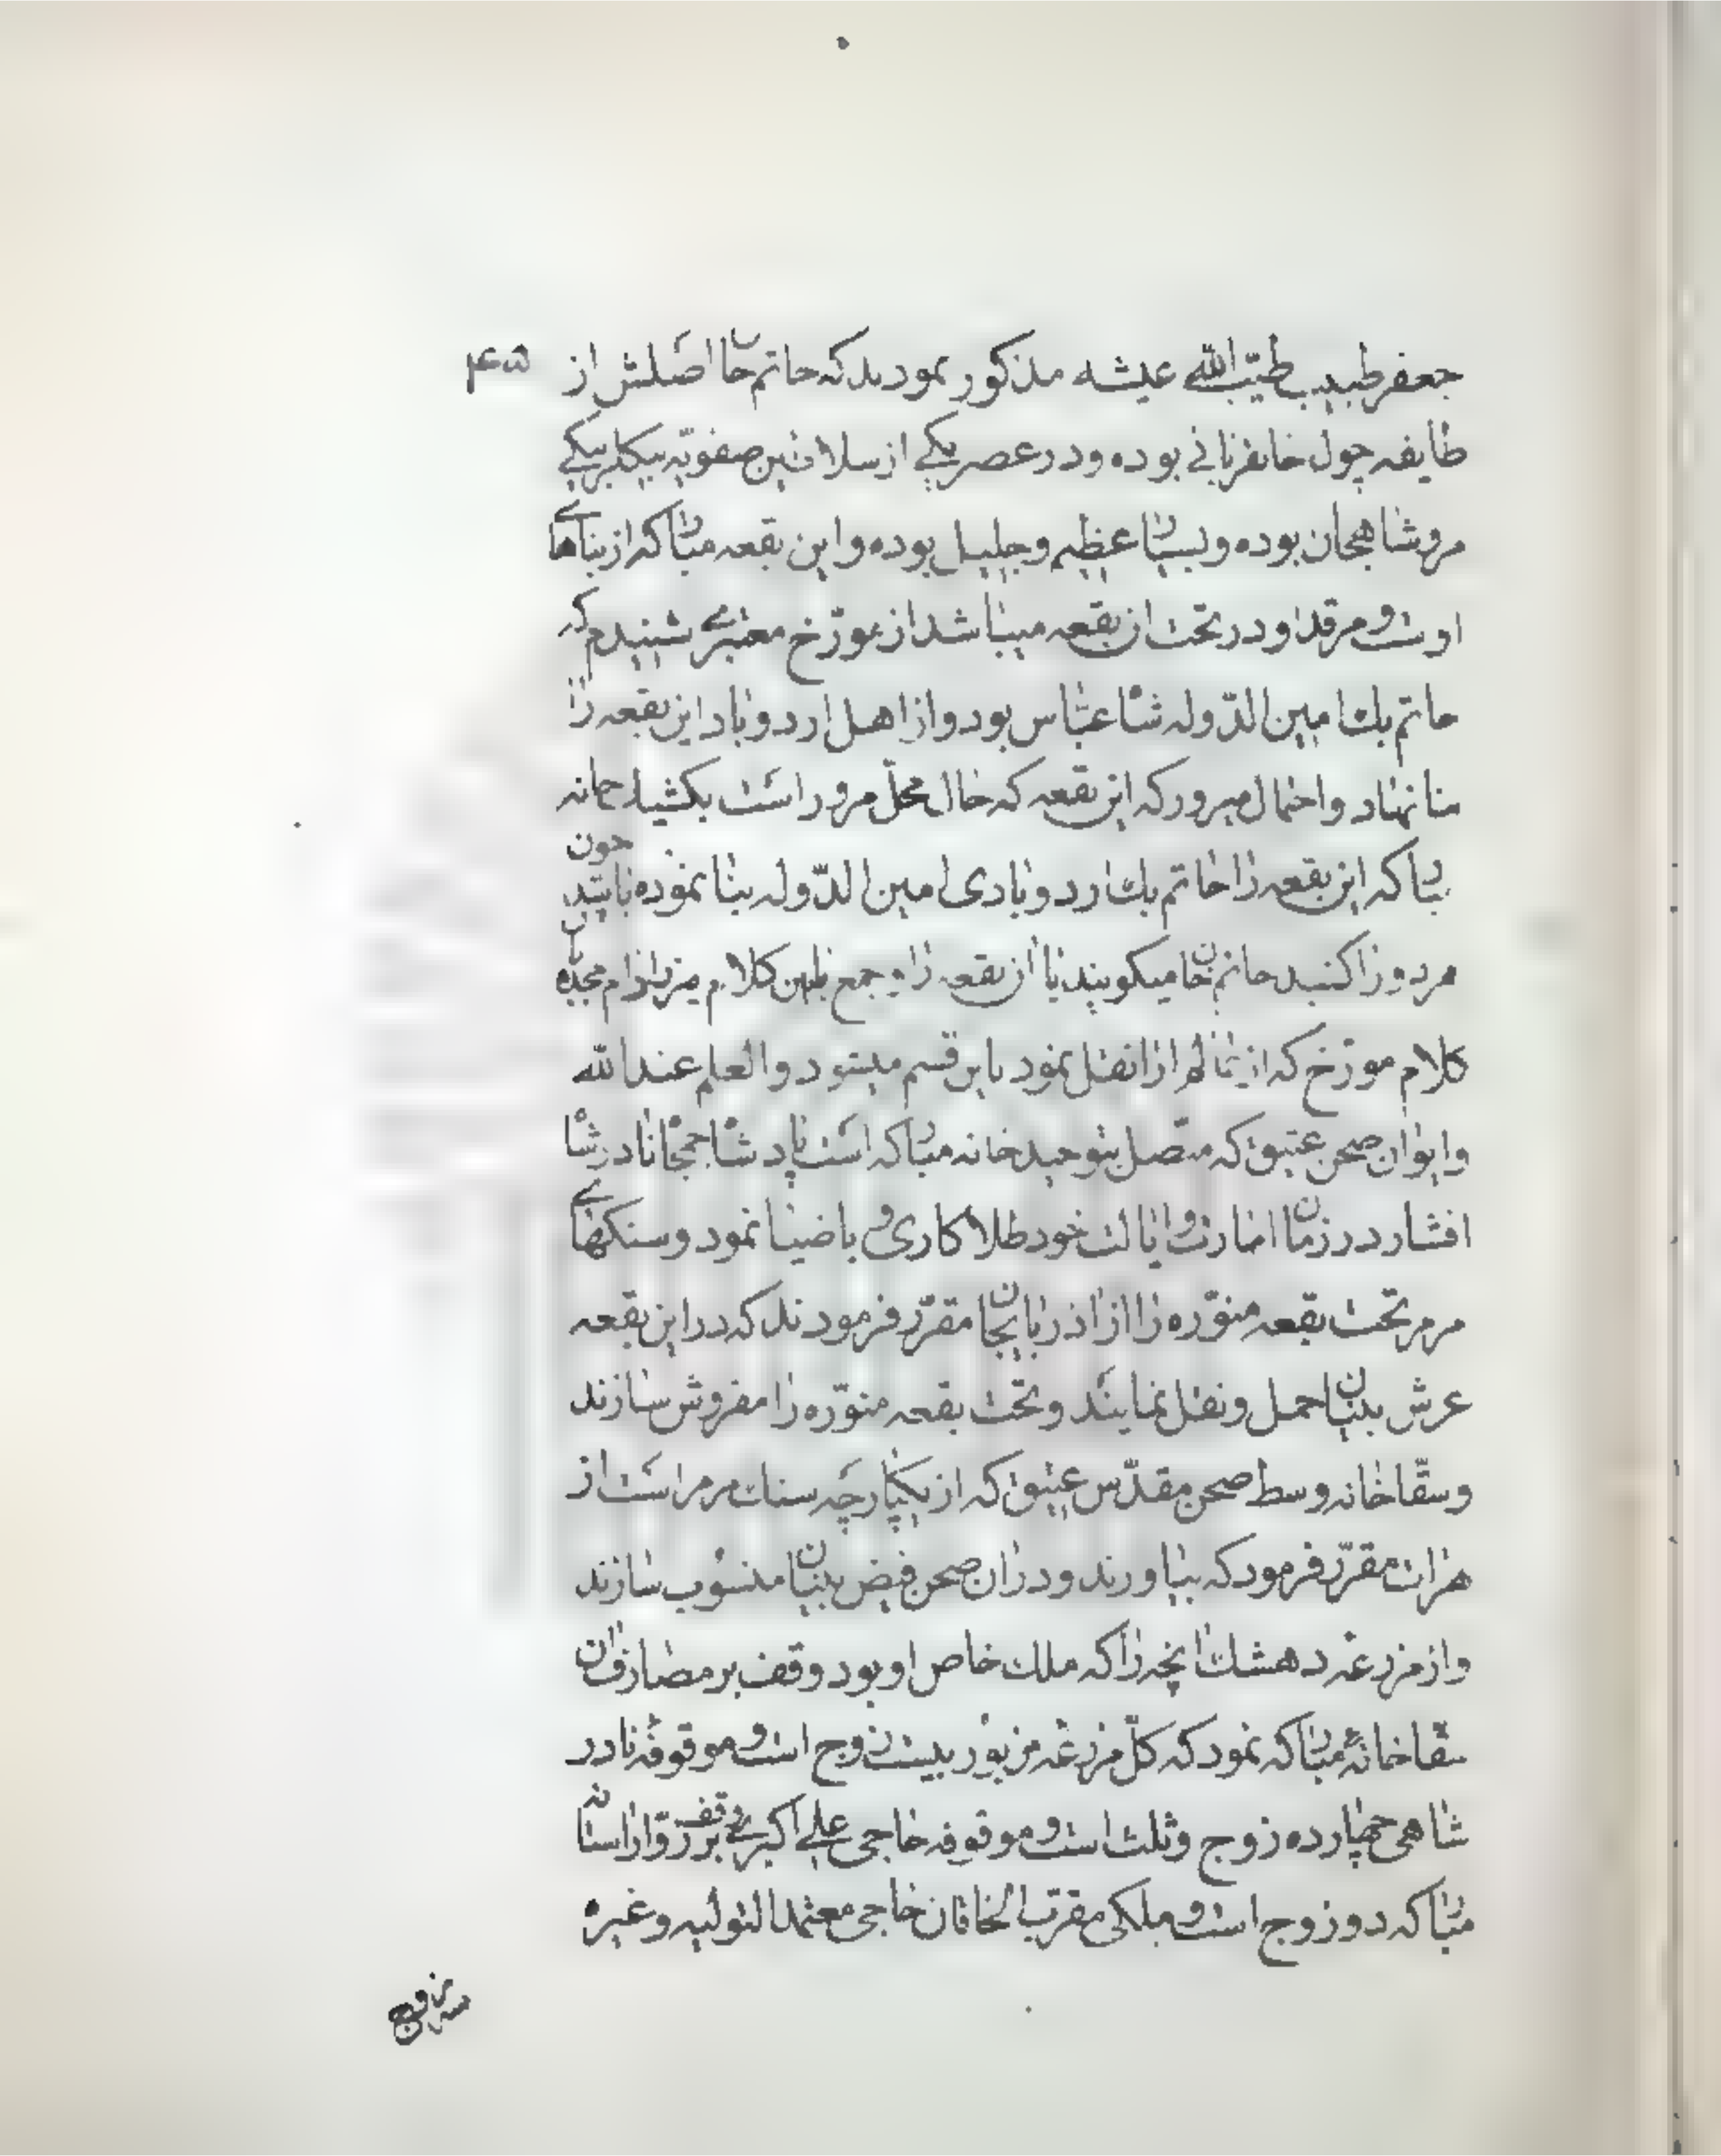 جعفر طبیب طیّب الله عیشه مذکور نمودند که حاتم خان اصلش از
طایفه چول خانقربانی بوده و در عصر یکی از سلاطین صفویّه بیکلربیکی
مرو شاهجان بوده و بسیار عظیم و جلیل بوده و این بقعه مبارکه از بناهای
اوست و مرقد او در تحت ان بقعه میباشد از مورّخ معتبری شنیدم که
حاتم بک امین الدّوله شاه عبّاس بود و از اهل اردوباد این بقعه را
بنا نهاد و احتمال میرود که این بقعه که حال محلّ مرور است بکشیک خانه
مبارکه این بقعه را حاتم بک اردوبادی امین الدّوله بنا نموده باشد چون
هر دو را کنبد حاتم خان میکویند بانی ان بقعه را و جمع مابین کلام میرزای
کلام مورّخ که از انها نقل نمود باین قسم میشود و العلم عند الله
و ایوان صحن عتیق که متّصل بتوحید خانه مبارکه است پادشاه جمجاه نادرشاه
افشار در زمان امارت و ایالت خود طلاکاری و با ضیا نمود و سنکهای
مرمر تحت بقعه منوّره را از اذربایجان مقرّر فرمودند که در این بقعه
عرش بنیان حمل و نقل نمایند و تحت بقعه منوّره را مفروش سازند
و سقّاخانه وسط صحن مقدّس عتیق که از یکپارچه سنک مرمر است از
هرات مقرّر فرمود که بیاورند و در ان صحن فیض بنیان منسوب سازند
و از مزرعه دهشک انچه را که ملک خاص او بود وقف بر مصارف ان
سقّاخانهٔ مبارکه نمود که کلّ مزرعه مزبور بیست زوج است و موقوفهٔ نادر
شاهی چهارده زوج و ثلث است و موقوفه حاجی علی اکبر وقف بر زوّار استانه
مبارکه دو زوج است و ملکی مقرّب الخاقان حاجی معتمد التولیه و غیره
سه زوج